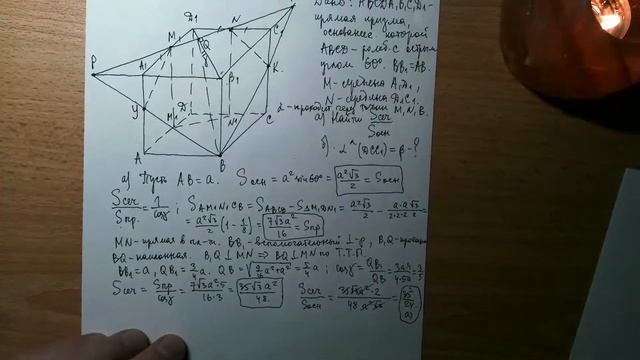 Дано: ABCDA₁B₁C₁D₁ -
прямая призма,
основание которой
ABCD - ромб с острым
углом 60°. BB₁=AB.
M - середина A₁D₁,
N - середина D₁C₁.
α - проходит через точки M, N, B.
а) Найти Sсеч/Sосн
б) α^(DCC₁) = β - ?
P
A₁
M
D₁
N
C₁
Q
B₁
K
У
D
M₁
N₁
C
A
B
а) Пусть AB=a. Sосн = a² sin 60° = a²√3/2 = Sосн
Sсеч/Sпр. = 1/cosγ ; S AM₁N₁CB = S ABCD - S ΔM₁DN₁ = a²√3/2 - a·a√3/2·2·2·2 =
= a²√3/2 (1 - 1/8) = 7√3a²/16 = Sпр
MN - прямая в пл-ти. BB₁ - вспомогательный ⊥-р, B₁Q - проекция
BQ - наклонная. B₁Q ⊥ MN ⇒ BQ ⊥ MN по Т.Т.П.
BB₁ = a, QB₁ = 3/4 a. QB = √(9/16 a² + a²) = 5/4 a ; cosγ = QB₁/QB = 3a·4/4·5a = 3/5
Sсеч = Sпр/cosγ = 7√3a²·5/16·3 = 35√3a²/48. Sсеч/Sосн = 35√3a²·2/48·a²√3 = 35/24.
а)